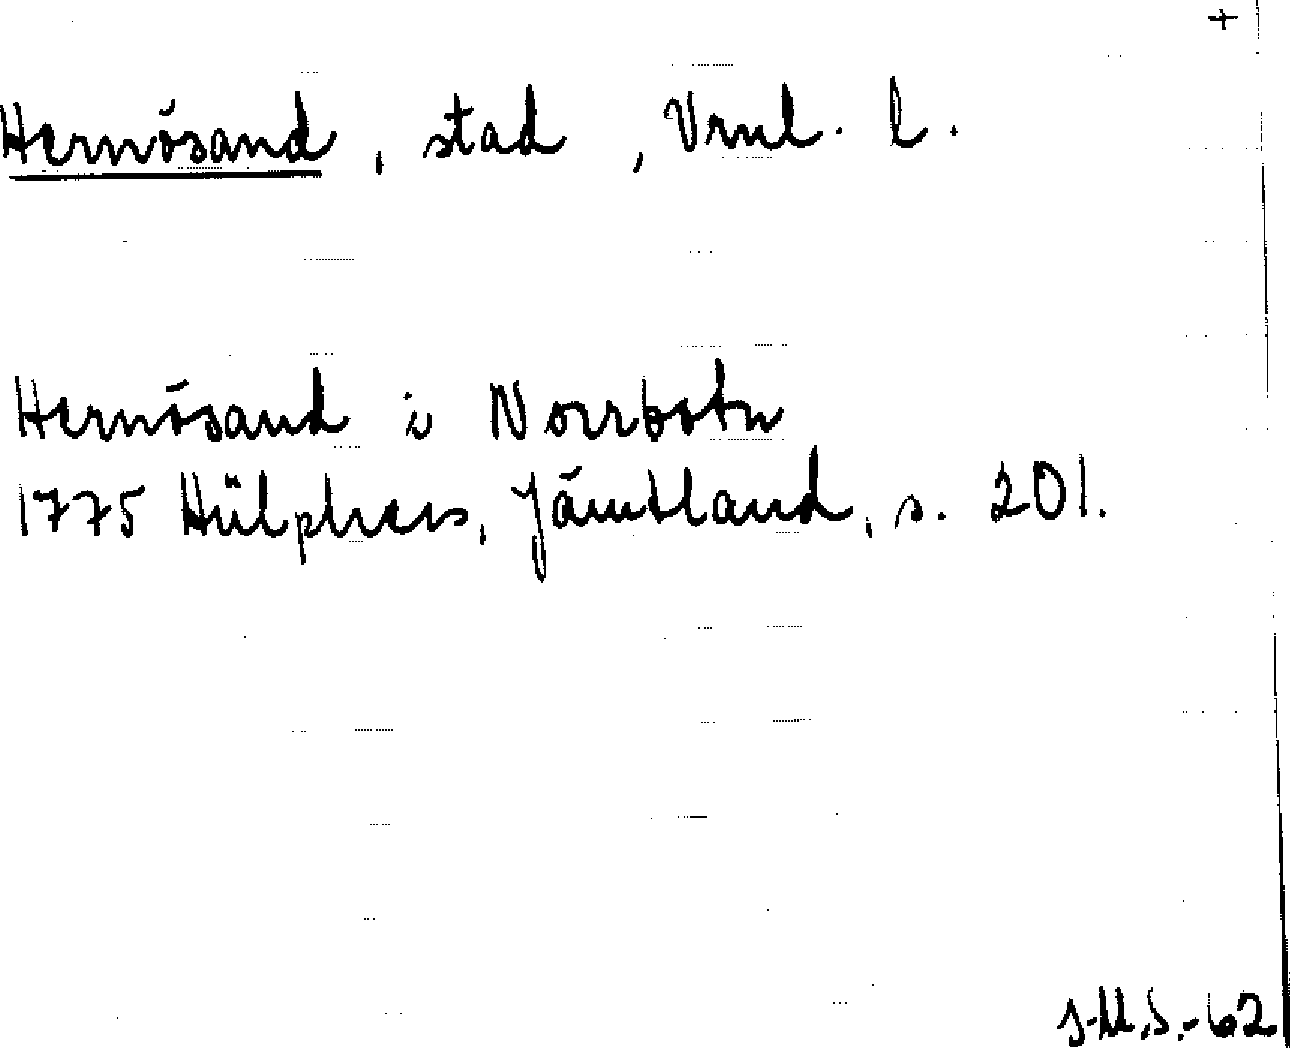 +
Hernösand, stad, Vrnl. l.
Hernösand i Norrbotn
1775 Hülphers, Jämtland, s. 201.
J-M.S.-62